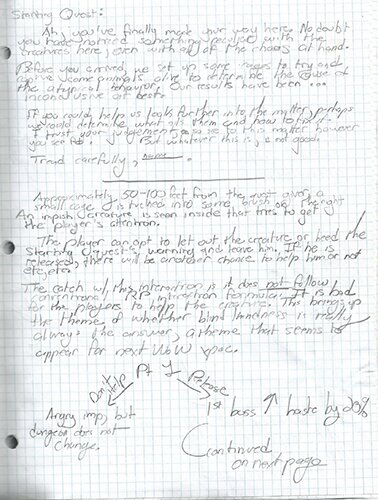 Starting Quest:
Ah, you've finally made your way here. No doubt
you have noticed something peculiar with the
creatures here, even with all of the chaos at hand.
Before you arrived, we set up some to try and
capture some animals alive to determine the cause of
the atypical behavior. Our results have been ...
inconclusive at best.
If you could help us look further into the matter, perhaps
we could determine what ails them and how to fix it.
I trust your judgement, to this matter however
you see fit. But whatever this is, is not good.
Tread carefully, name.
Approximately 50-100 feet from the quest giver, a
small cage is tucked into some brush on the right.
An impish creature is seen inside that tries to get
the player's attention.
The player can opt to let out the creature or heed the
Starting Quest's warning and leave him. If he is
released, there will be another chance to help him or not
etc, etc.
The catch w/ this interaction is it does not follow
conventional RP interaction formula. It is bad
for the players to help the creature. This brings up
the theme of whether blind kindness is really
always the answer, a theme that seems to
appear for next WoW xpac.
Pt 1
Don't Help
Release
Angry imp, but
dungeon does not
change.
1st boss ↑ haste by 20%
Continued
on next page